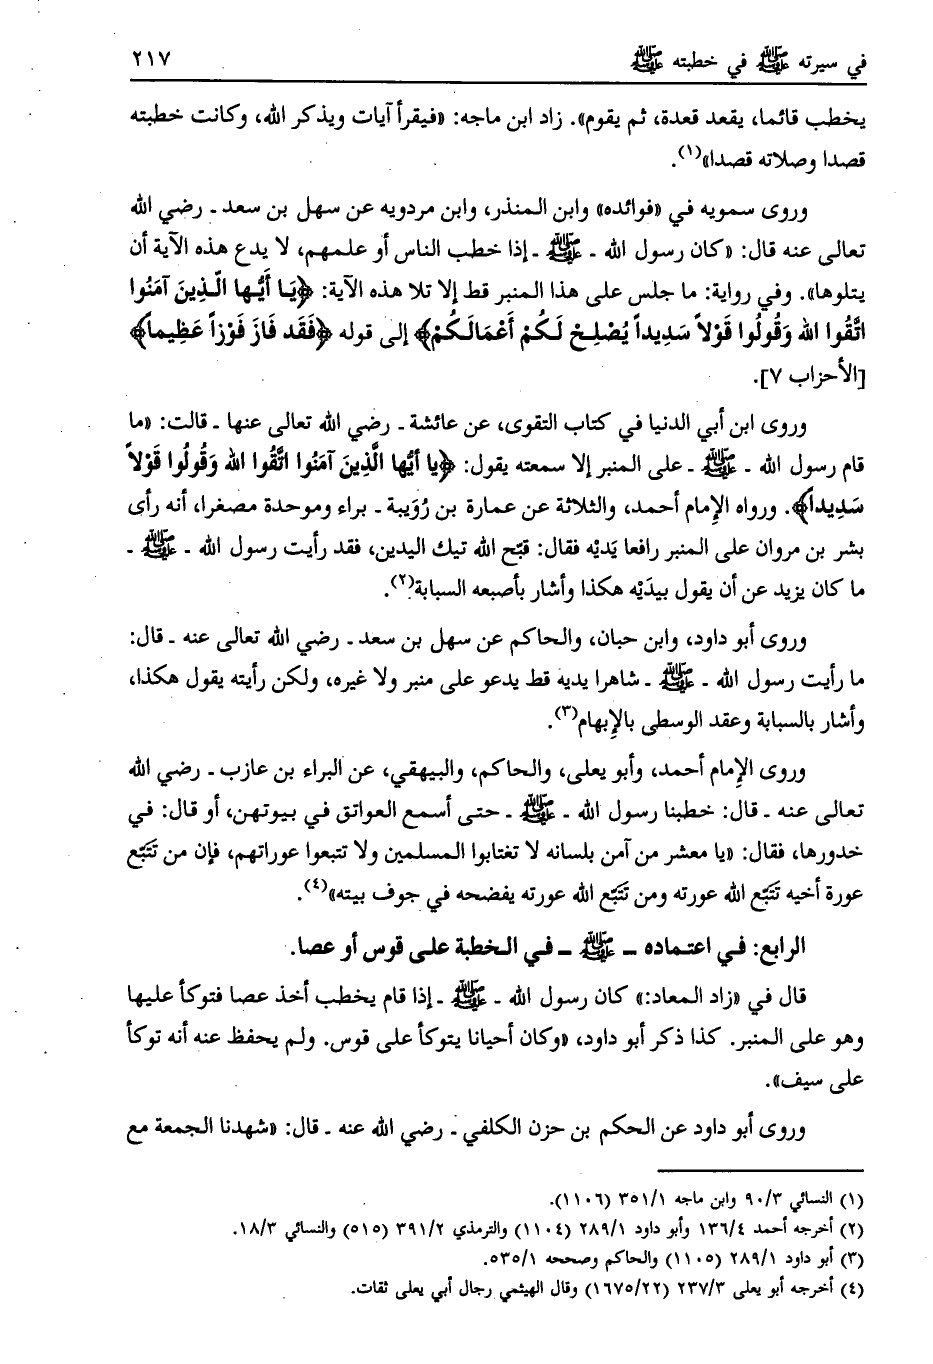 في سيرته ﷺ في خطبته ﷺ ٢١٧
يخطب قائما، يقعد قعدة، ثم يقوم». زاد ابن ماجه: «فيقرأ آيات ويذكر الله، وكانت خطبته
قصدا وصلاته قصدا»(١).
وروى سمويه في «فوائده» وابن المنذر، وابن مردويه عن سهل بن سعد ـ رضي الله
تعالى عنه قال: «كان رسول الله ـ ﷺ ـ إذا خطب الناس أو علمهم، لا يدع هذه الآية أن
يتلوها». وفي رواية: ما جلس على هذا المنبر قط إلا تلا هذه الآية: ﴿يَا أَيُّها الَّذِينَ آمَنُوا
اتَّقُوا الله وَقُولُوا قَوْلاً سَدِيداً يُصْلِحْ لَكُمْ أَعْمَالَكُمْ﴾ إلى قوله ﴿فَقَد فَازَ فَوْزاً عَظِيماً﴾
[الأحزاب ٧].
وروى ابن أبي الدنيا في كتاب التقوى، عن عائشة ـ رضي الله تعالى عنها ـ قالت: «ما
قام رسول الله ـ ﷺ ـ على المنبر إلا سمعته يقول: ﴿يا أيُّها الَّذِينَ آمَنُوا اتَّقُوا الله وَقُولُوا قَوْلاً
سَدِيداً﴾. ورواه الإمام أحمد، والثلاثة عن عمارة بن رُوَيبة ـ براء وموحدة مصغرا، أنه رأى
بشر بن مروان على المنبر رافعا يَديْه فقال: قبّح الله تيك اليدين، فقد رأيت رسول الله ـ ﷺ ـ
ما كان يزيد عن أن يقول بيدَيْه هكذا وأشار بأصبعه السبابة(٢).
وروى أبو داود، وابن حبان، والحاكم عن سهل بن سعد ـ رضي الله تعالى عنه ـ قال:
ما رأيت رسول الله ـ ﷺ ـ شاهرا يديه قط يدعو على منبر ولا غيره، ولكن رأيته يقول هكذا،
وأشار بالسبابة وعقد الوسطى بالإبهام(٣).
وروى الإمام أحمد، وأبو يعلى، والحاكم، والبيهقي، عن البراء بن عازب ـ رضي الله
تعالى عنه ـ قال: خطبنا رسول الله ـ ﷺ ـ حتى أسمع العواتق في بيوتهن، أو قال: في
خدورها، فقال: «يا معشر من آمن بلسانه لا تغتابوا المسلمين ولا تتبعوا عوراتهم، فإن من تَتَبّع
عورة أخيه تَتَبّع الله عورته ومن تَتَبّع الله عورته يفضحه في جوف بيته»(٤).
الرابع: في اعتماده ـ ﷺ ـ في الخطبة على قوس أو عصا.
قال في «زاد المعاد:» كان رسول الله ـ ﷺ ـ إذا قام يخطب أخذ عصا فتوكأ عليها
وهو على المنبر. كذا ذكر أبو داود، «وكان أحيانا يتوكأ على قوس. ولم يحفظ عنه أنه توكأ
على سيف».
وروى أبو داود عن الحكم بن حزن الكلفي ـ رضي الله عنه ـ قال: «شهدنا الجمعة مع
(١) النسائي ٩٠/٣ وابن ماجه ٣٥١/١ (١١٠٦).
(٢) أخرجه أحمد ١٣٦/٤ وأبو داود ٢٨٩/١ (١١٠٤) والترمذي ٣٩١/٢ (٥١٥) والنسائي ١٨/٣.
(٣) أبو داود ٢٨٩/١ (١١٠٥) والحاكم وصححه ٥٣٥/١.
(٤) أخرجه أبو يعلى ٢٣٧/٣ (١٦٧٥/٢٢) وقال الهيثمي رجال أبي يعلى ثقات.